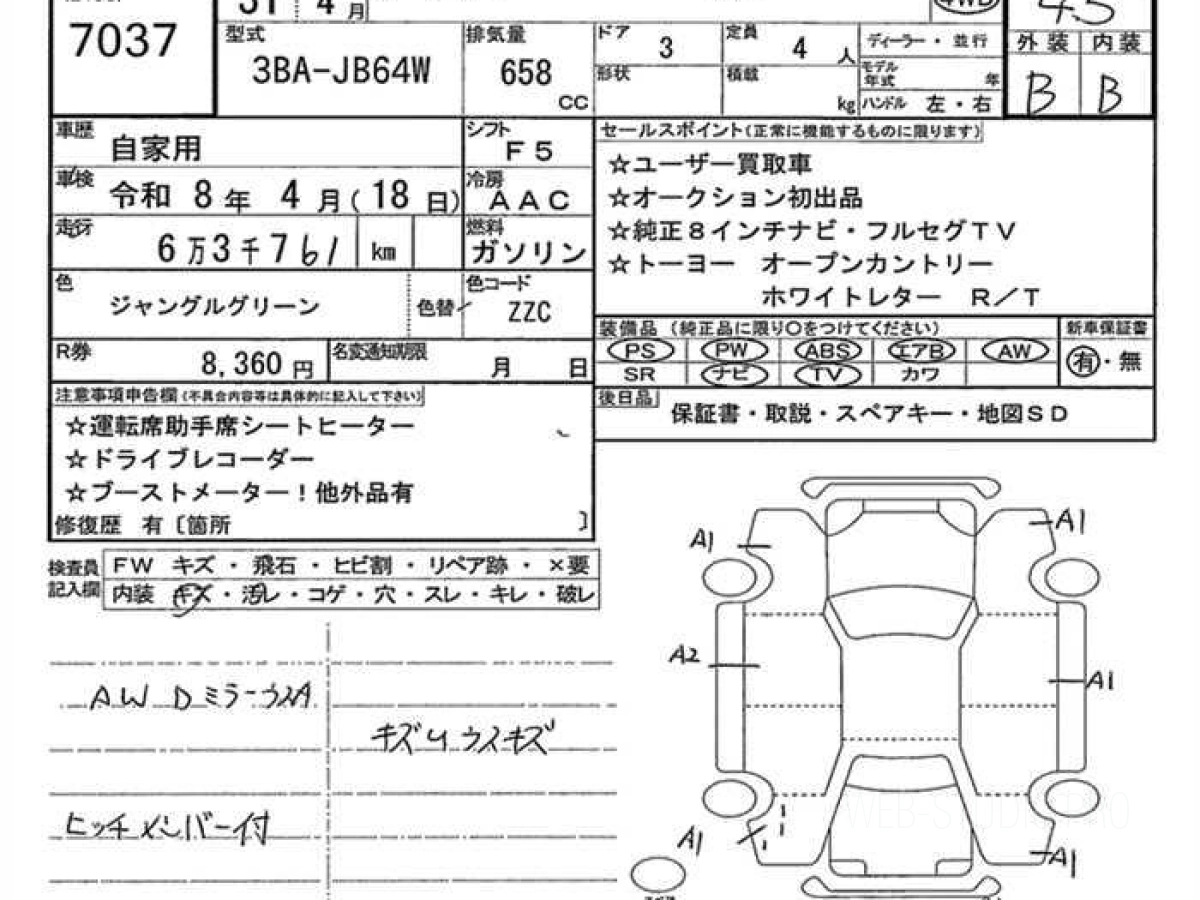 31 4月
4WD
4.5
7037
型式
3BA-JB64W
排気量
658
CC
ドア
3
定員
4 人
形状
積載
kg
ディーラー・並行
モデル年式 年
ハンドル 左・右
外装 内装
B B
車歴
自家用
シフト
F5
車検
令和 8年 4月(18日)
冷房
AAC
走行
6万3千761 km
燃料
ガソリン
色
ジャングルグリーン
色替
色コード
ZZC
R券
8,360円
名変通知期限
月 日
セールスポイント(正常に機能するものに限ります)
☆ユーザー買取車
☆オークション初出品
☆純正8インチナビ・フルセグTV
☆トーヨー オープンカントリー
ホワイトレター R/T
装備品 (純正品に限り○をつけてください)
新車保証書
PS PW ABS エアB AW
有・無
SR ナビ TV カワ
後日品
保証書・取説・スペアキー・地図SD
注意事項申告欄(不具合内容等は具体的に記入して下さい)
☆運転席助手席シートヒーター
☆ドライブレコーダー
☆ブーストメーター!他外品有
修復歴 有〔箇所 〕
検査員記入欄
FW キズ・飛石・ヒビ割・リペア跡・×要
内装 キズ・汚レ・コゲ・穴・スレ・キレ・破レ
AW DミラーウスA
キズ4 ウスキズ
ヒッチメンバー付
A1
A1
A2
A1
A1
A1
WEB-STUDIO.PRO